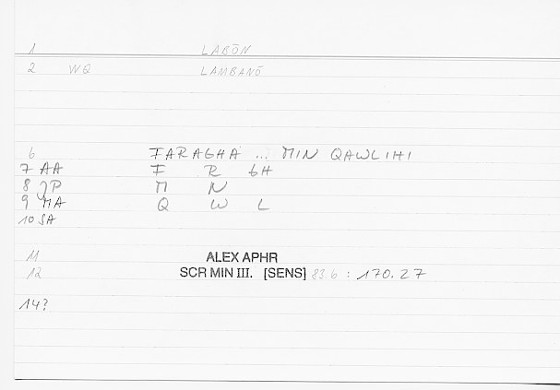 1 LABŌN
2 WQ LAMBANŌ
6 FARAGHA ... MIN QAWLIHI
7 AA F R GH
8 JP M N
9 MA Q W L
10 SA
11 ALEX APHR
12 SCR MIN III. [SENS] 83b : 170.27
14?